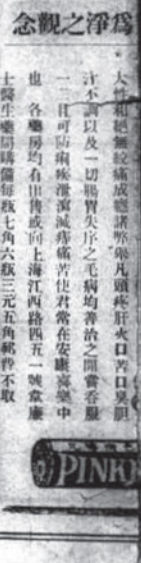 為淨之觀念
大性和絕無絞痛成癮諸弊舉凡頭疼肝火口苦口臭胆
汁不調以及一切腸胃失序之毛病均善治之閒嘗吞服
一二且可防痢疾泄瀉滅痔痛苦使君常在安康喜樂中
也 各藥房均有出售或向上海江西路四五一號韋廉
士醫生藥局購備每瓶七角六瓶三元五角郵費不取
PINK